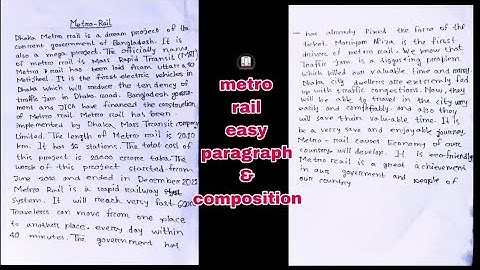 Metro-Rail
Dhaka Metro rail is a dream project of the
current government of Bangladesh. It is
also a mega project. The officially name
of metro rail is Mass Rapid Transit (MRT)
Metro rail has been laid from uttara to
Motijheel. It is the first electric vehicles in
Dhaka which will reduce the tendency of
traffic jam in Dhaka road. Bangladesh govern-
ment and JICA have financed the construction
of Metro rail. Metro rail has been
implemented by Dhaka Mass Transit company
Limited. The length of Metro rail is 20.10
km. It has 16 stations. The total cost of
this project is 22000 crore taka. The
work of this project started from
June 2016 and ended in December 2021
Metro Rail is a rapid railway
system. It will reach very fast
Travelers can move from one place
to another place. every day within
40 minutes. The government has
has already fixed the fare of the
ticket. Mariyam Afiza is the first
driver of metro rail. We know that
Traffic Jam is a disgusting problem
which killed our valuable time and money
Dhaka city dwellers are extremly fed
up with traffic congestions. Now, they
will be able to travel in the city very
easily and comfortably and also they
will save their valuable time. It is
be a very save and enjoyable journey
Metro-rail causes Economy of our
country will develop. It is eco-friendly
Metro recail is a great achievement
in our government and people of
our country
metro
rail
easy
paragraph
&
composition